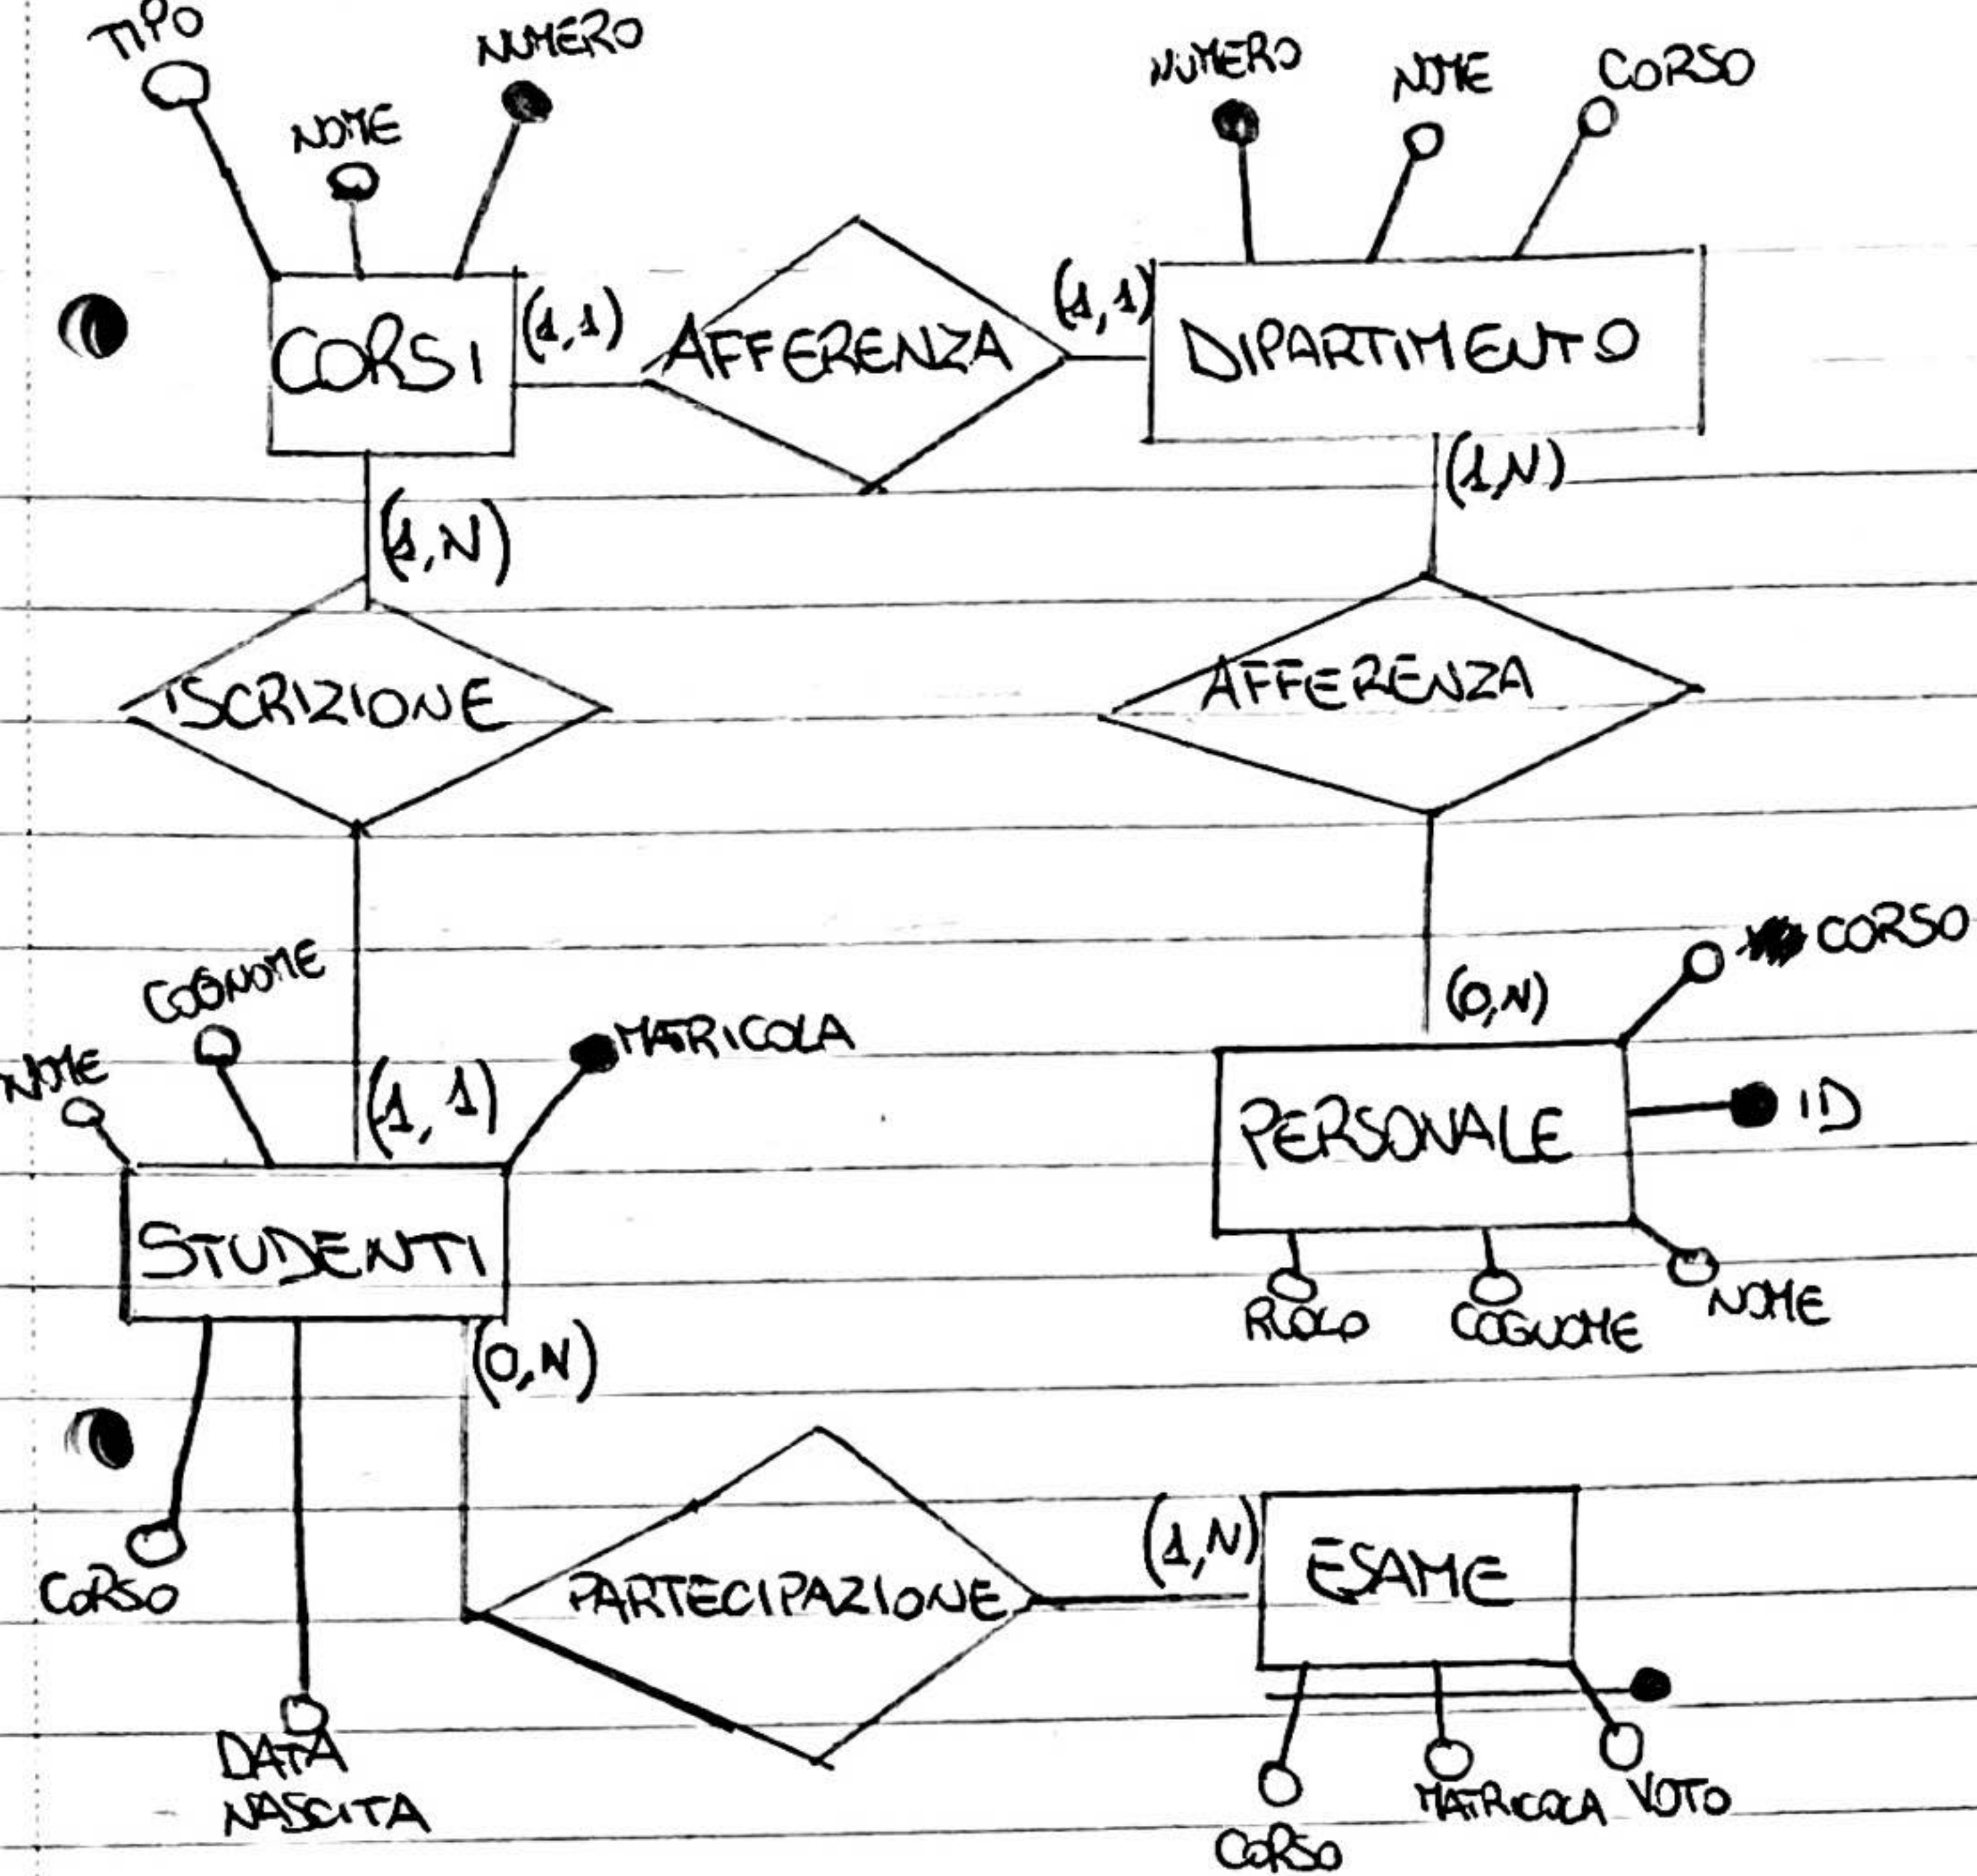 TIPO
NUMERO
NOME
NUMERO
NOME
CORSO
CORSI
(1,1)
AFFERENZA
(1,1)
DIPARTIMENTO
(1,N)
(1,N)
ISCRIZIONE
AFFERENZA
COGNOME
NOME
(1,1)
MATRICOLA
(0,N)
CORSO
ID
PERSONALE
STUDENTI
RUOLO
COGNOME
NOME
(0,N)
CORSO
DATA
NASCITA
PARTECIPAZIONE
(1,N)
ESAME
CORSO
MATRICOLA
VOTO